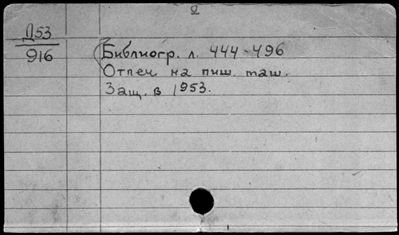 2
Д53
916
Библиогр. л. 444-496
Отпеч на пиш. маш.
Защ. в 1953.